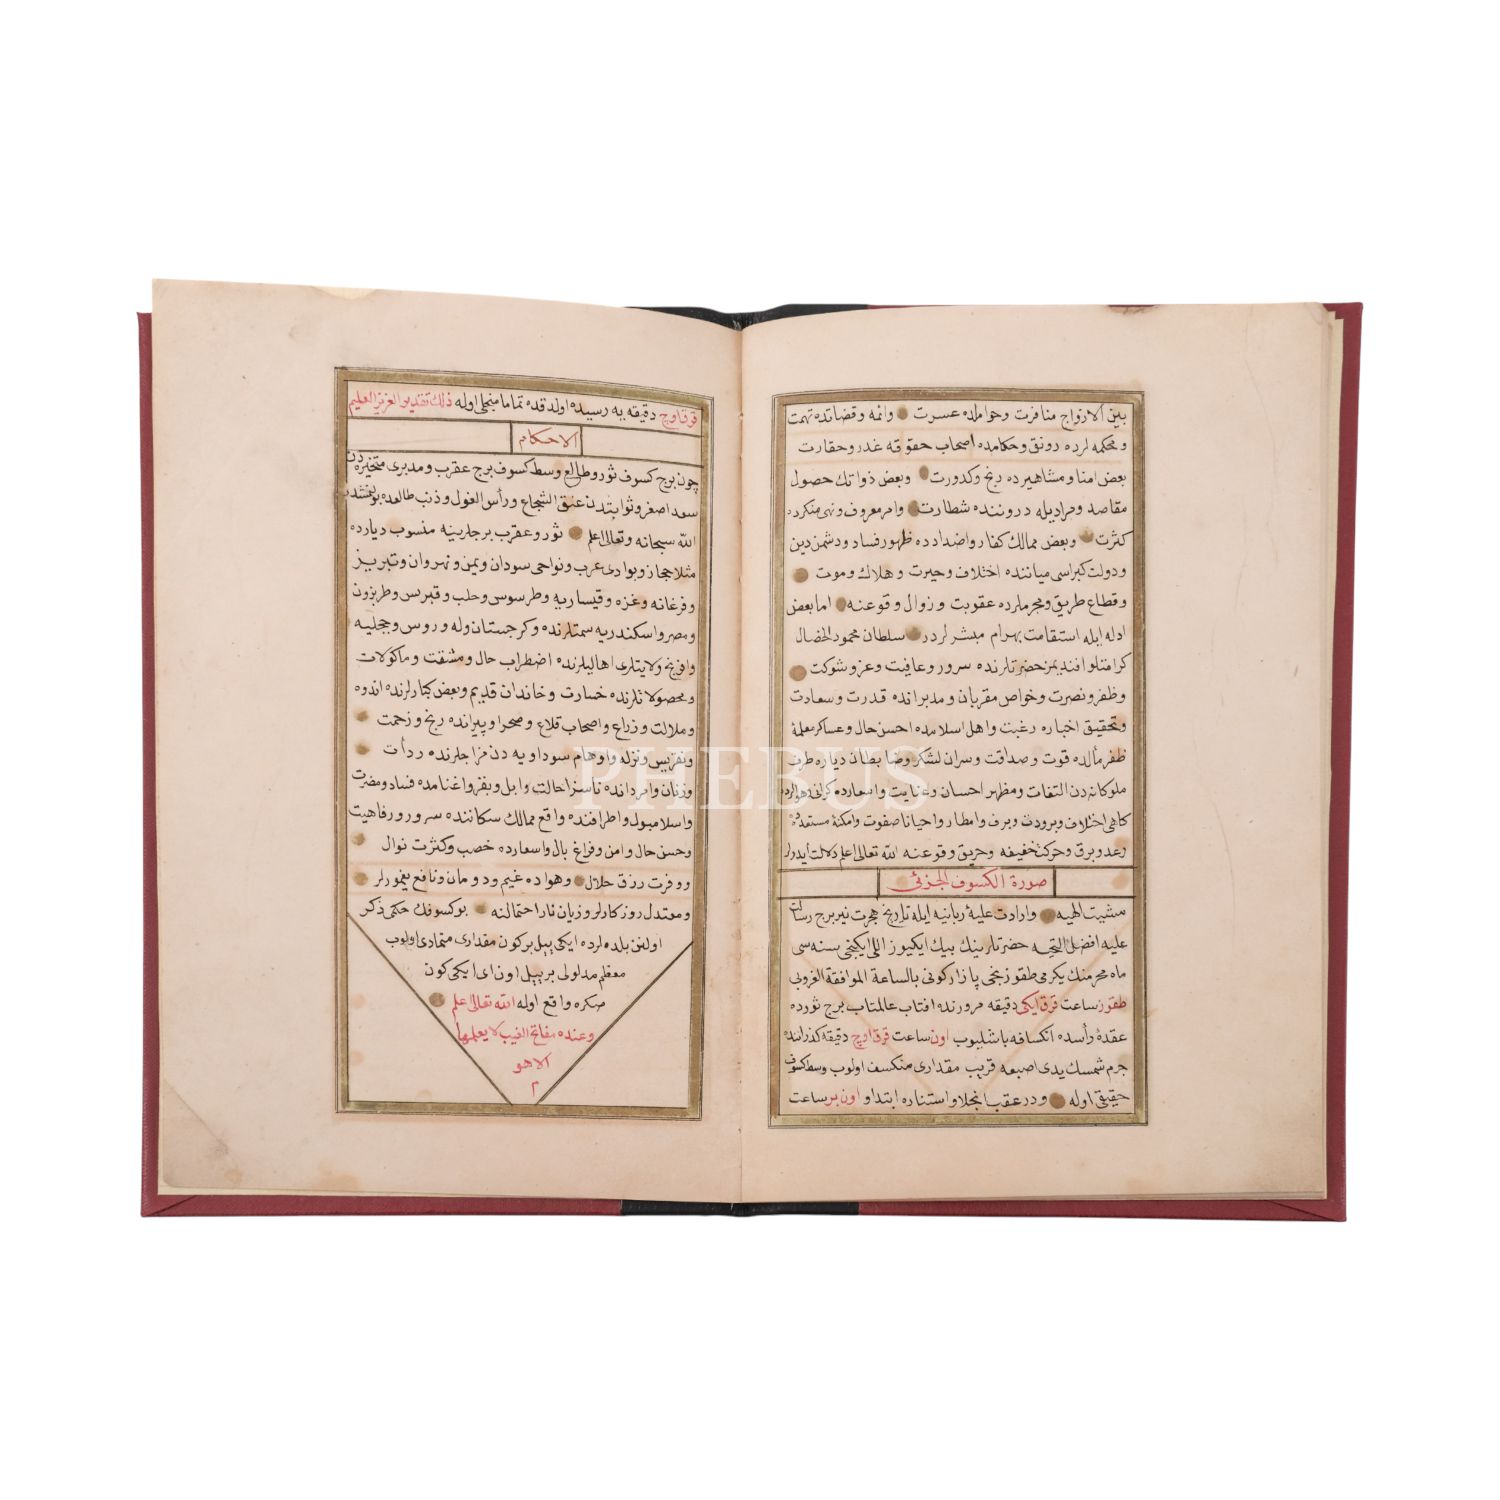 بين الازواج منافرت وحواملده عسرت وائمه وقضاتده تهمت
ومحكمه لرده رونق وحكامده اصحاب حقوقه غدر وحقارت
بعض امنا ومشاهيرده رنج وكدورت وبعض ذواتك حصول
مقاصد ومراديله دروننده شطارت وامر معروف ونهى منكرده
كثرت وبعض ممالك كفار واضدادده ظهور فساد ودشمن دين
ودولت كبراسى ميانندہ اختلاف وحيرت وهلاك وموت
وقطاع طريق ومجرملرده عقوبت وزوال وقوعنه اما بعض
ادله ايله استقامت بهرام مبشرلردر سلطان محمود الخصال
كرامتلو افنديمز حضرتلرنده سرور وعافيت وعز وشوكت
وظفر ونصرت وخواص مقربان ومدبرانده قدرت وسعادت
وتحقيق اخباره رغبت واهل اسلامده احسن حال وعساكر معلمۀ
ظفر مألده قوت وصداقت وسران لشكر وضابطان دياره طرف
ملوكانه دن التفات ومظهر احسان وعنايت واسعارده كرانى وهوالرده
كاهى اختلاف وبرودت وبرف وامطار واحيانا صفوت وامكنۀ مستعده
رعد وبرق وحركت خفيفه وحريق وقوعنه الله تعالى اعلم دلالت ايدرلر
صورة الكسوف الجزئى
مشيت الهيه وارادت عليۀ ربانيه ايله تاريخ هجرت نير برج رسالت
عليه افضل التحيه حضرتلرينك بيك ايكيوز اللى ايكنجى سنه سى
ماه محرمنك يكرمى طقوزنجى پازار كونى بالساعة الموافقة الغروبى
طقوز ساعت قرق ايكى دقيقه مرورنده افتاب عالمتاب برج ثورده
عقدۀ رأسده انكسافه باشليوب اون ساعت قرق اوچ دقيقه كذراننده
جرم شمسك يدى اصبعه قريب مقدارى منكسف اولوب وسط كسوف
حقيقى اوله ودر عقب انجلا واستناره ابتدا و اون بر ساعت
قرق اوچ دقيقه يه رسيده اولدقده تماما منجلى اوله ذلك تقدير العزيز العليم
الاحكام
چون برج كسوف ثور وطالع وسط كسوف برج عقرب ومدبرى متحيزه دن
سعد اصغر وثوابتدن عنق الشجاع ورأس الغول وذنب طالعده بولنمشدر
الله سبحانه وتعالى اعلم ثور وعقرب برجلرينه منسوب ديارده
مثلا حجاز وبوادى عرب ونواحى سودان ويمن ونهروان وتبريز
وفرغانه وغزه وقيساريه وطرسوس وحلب وقبريس وطربزون
ومصر واسكندريه سمتلرنده وكرجستان وله وروس وچجليه
وافرنج ولايتلرى اهاليلرنده اضطراب حال ومشقت ومأكولات
ومحصولاتلرنده خسارت وخاندان قديم وبعض كبارلرنده اندوه
وملالت وزراع واصحاب قلاع وصحرا وپيرانده رنج وزحمت
ونقريس ونزله واوهام سوداويه دن مزاجلرنده ردأت
وزنان وامردانده ناسزا حالت وابل وبقر واغنامده فساد ومضرت
واسلامبول واطرافنده واقع ممالك سكاننده سرور ورفاهيت
وحسن حال وامن وفراغ بال واسعارده خصب وكثرت نوال
ووفرت رزق حلال وهواده غيم ودومان ونافع يغمورلر
ومعتدل روزكارلر وزيان نار احتمالنه بو كسوفك حكمى ذكر
اولنن بلده لرده ايكى ييل بر كون مقدارى متمادى اولوب
معظم مدلولى بر ييل اون اى ايكى كون
صكره واقع اوله الله تعالى اعلم
وعنده مفاتح الغيب لا يعلمها
الا هو
م
PHEBUS